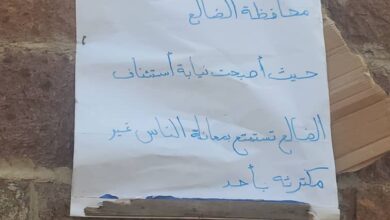 محافظة الضالع
حيث أصبحت نيابة أستئناف
الضالع تستمتع بمعاناة الناس غير
مكترثه بأحد